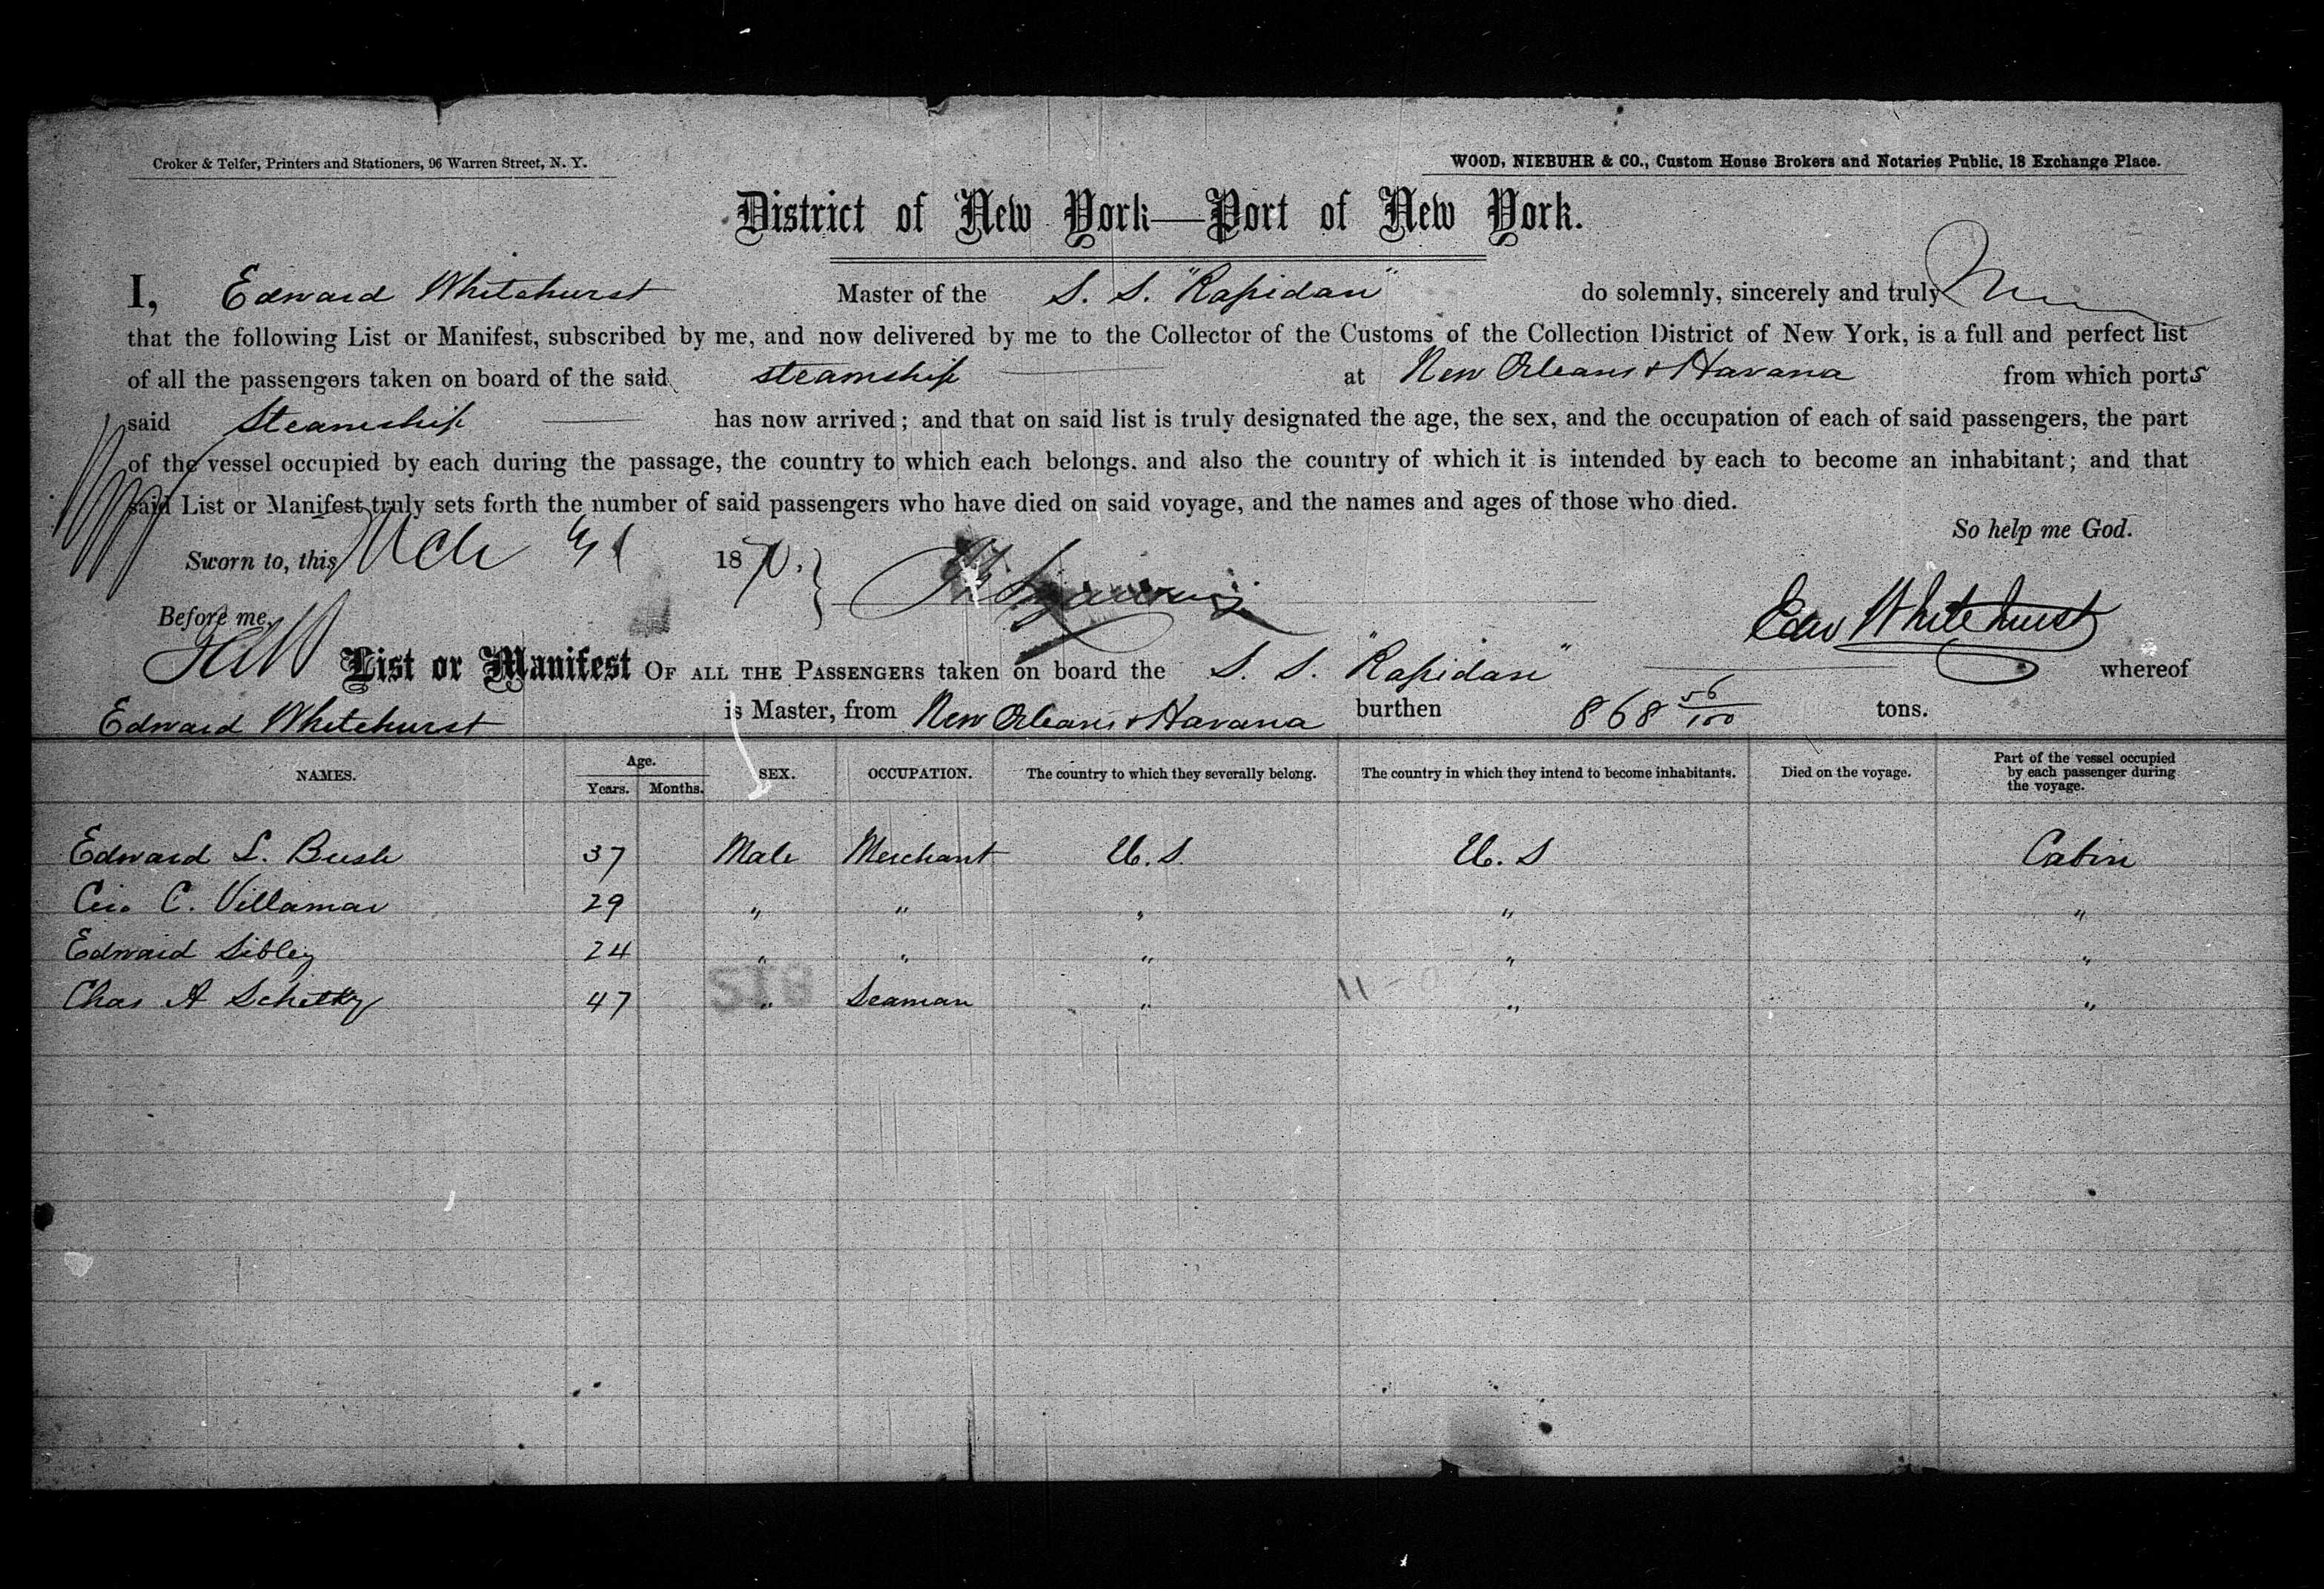 Croker & Telfer, Printers and Stationers, 96 Warren Street, N. Y.
WOOD, NIEBUHR & CO., Custom House Brokers and Notaries Public, 18 Exchange Place.
District of New York—Port of New York.
I, Edward Whitehurst Master of the S. S. "Rapidan" do solemnly, sincerely and truly
that the following List or Manifest, subscribed by me, and now delivered by me to the Collector of the Customs of the Collection District of New York, is a full and perfect list
of all the passengers taken on board of the said steamship at New Orleans & Havana from which ports
said Steamship has now arrived; and that on said list is truly designated the age, the sex, and the occupation of each of said passengers, the part
of the vessel occupied by each during the passage, the country to which each belongs, and also the country of which it is intended by each to become an inhabitant; and that
said List or Manifest truly sets forth the number of said passengers who have died on said voyage, and the names and ages of those who died.
So help me God.
Sworn to, this Mch 1870.
Before me,
Edw Whitehurst
List or Manifest OF ALL THE PASSENGERS taken on board the S. S. "Rapidan" whereof
Edward Whitehurst is Master, from New Orleans & Havana burthen 868 56/100 tons.
NAMES. Age. Years. Months. SEX. OCCUPATION. The country to which they severally belong. The country in which they intend to become inhabitants. Died on the voyage. Part of the vessel occupied by each passenger during the voyage.
Edward L. Bush 37 Male Merchant U. S. U. S Cabin
C. Villamar 29 " " " " "
Edward Sibley 24 " " " " "
Chas A Schetky 47 " Seaman " " "